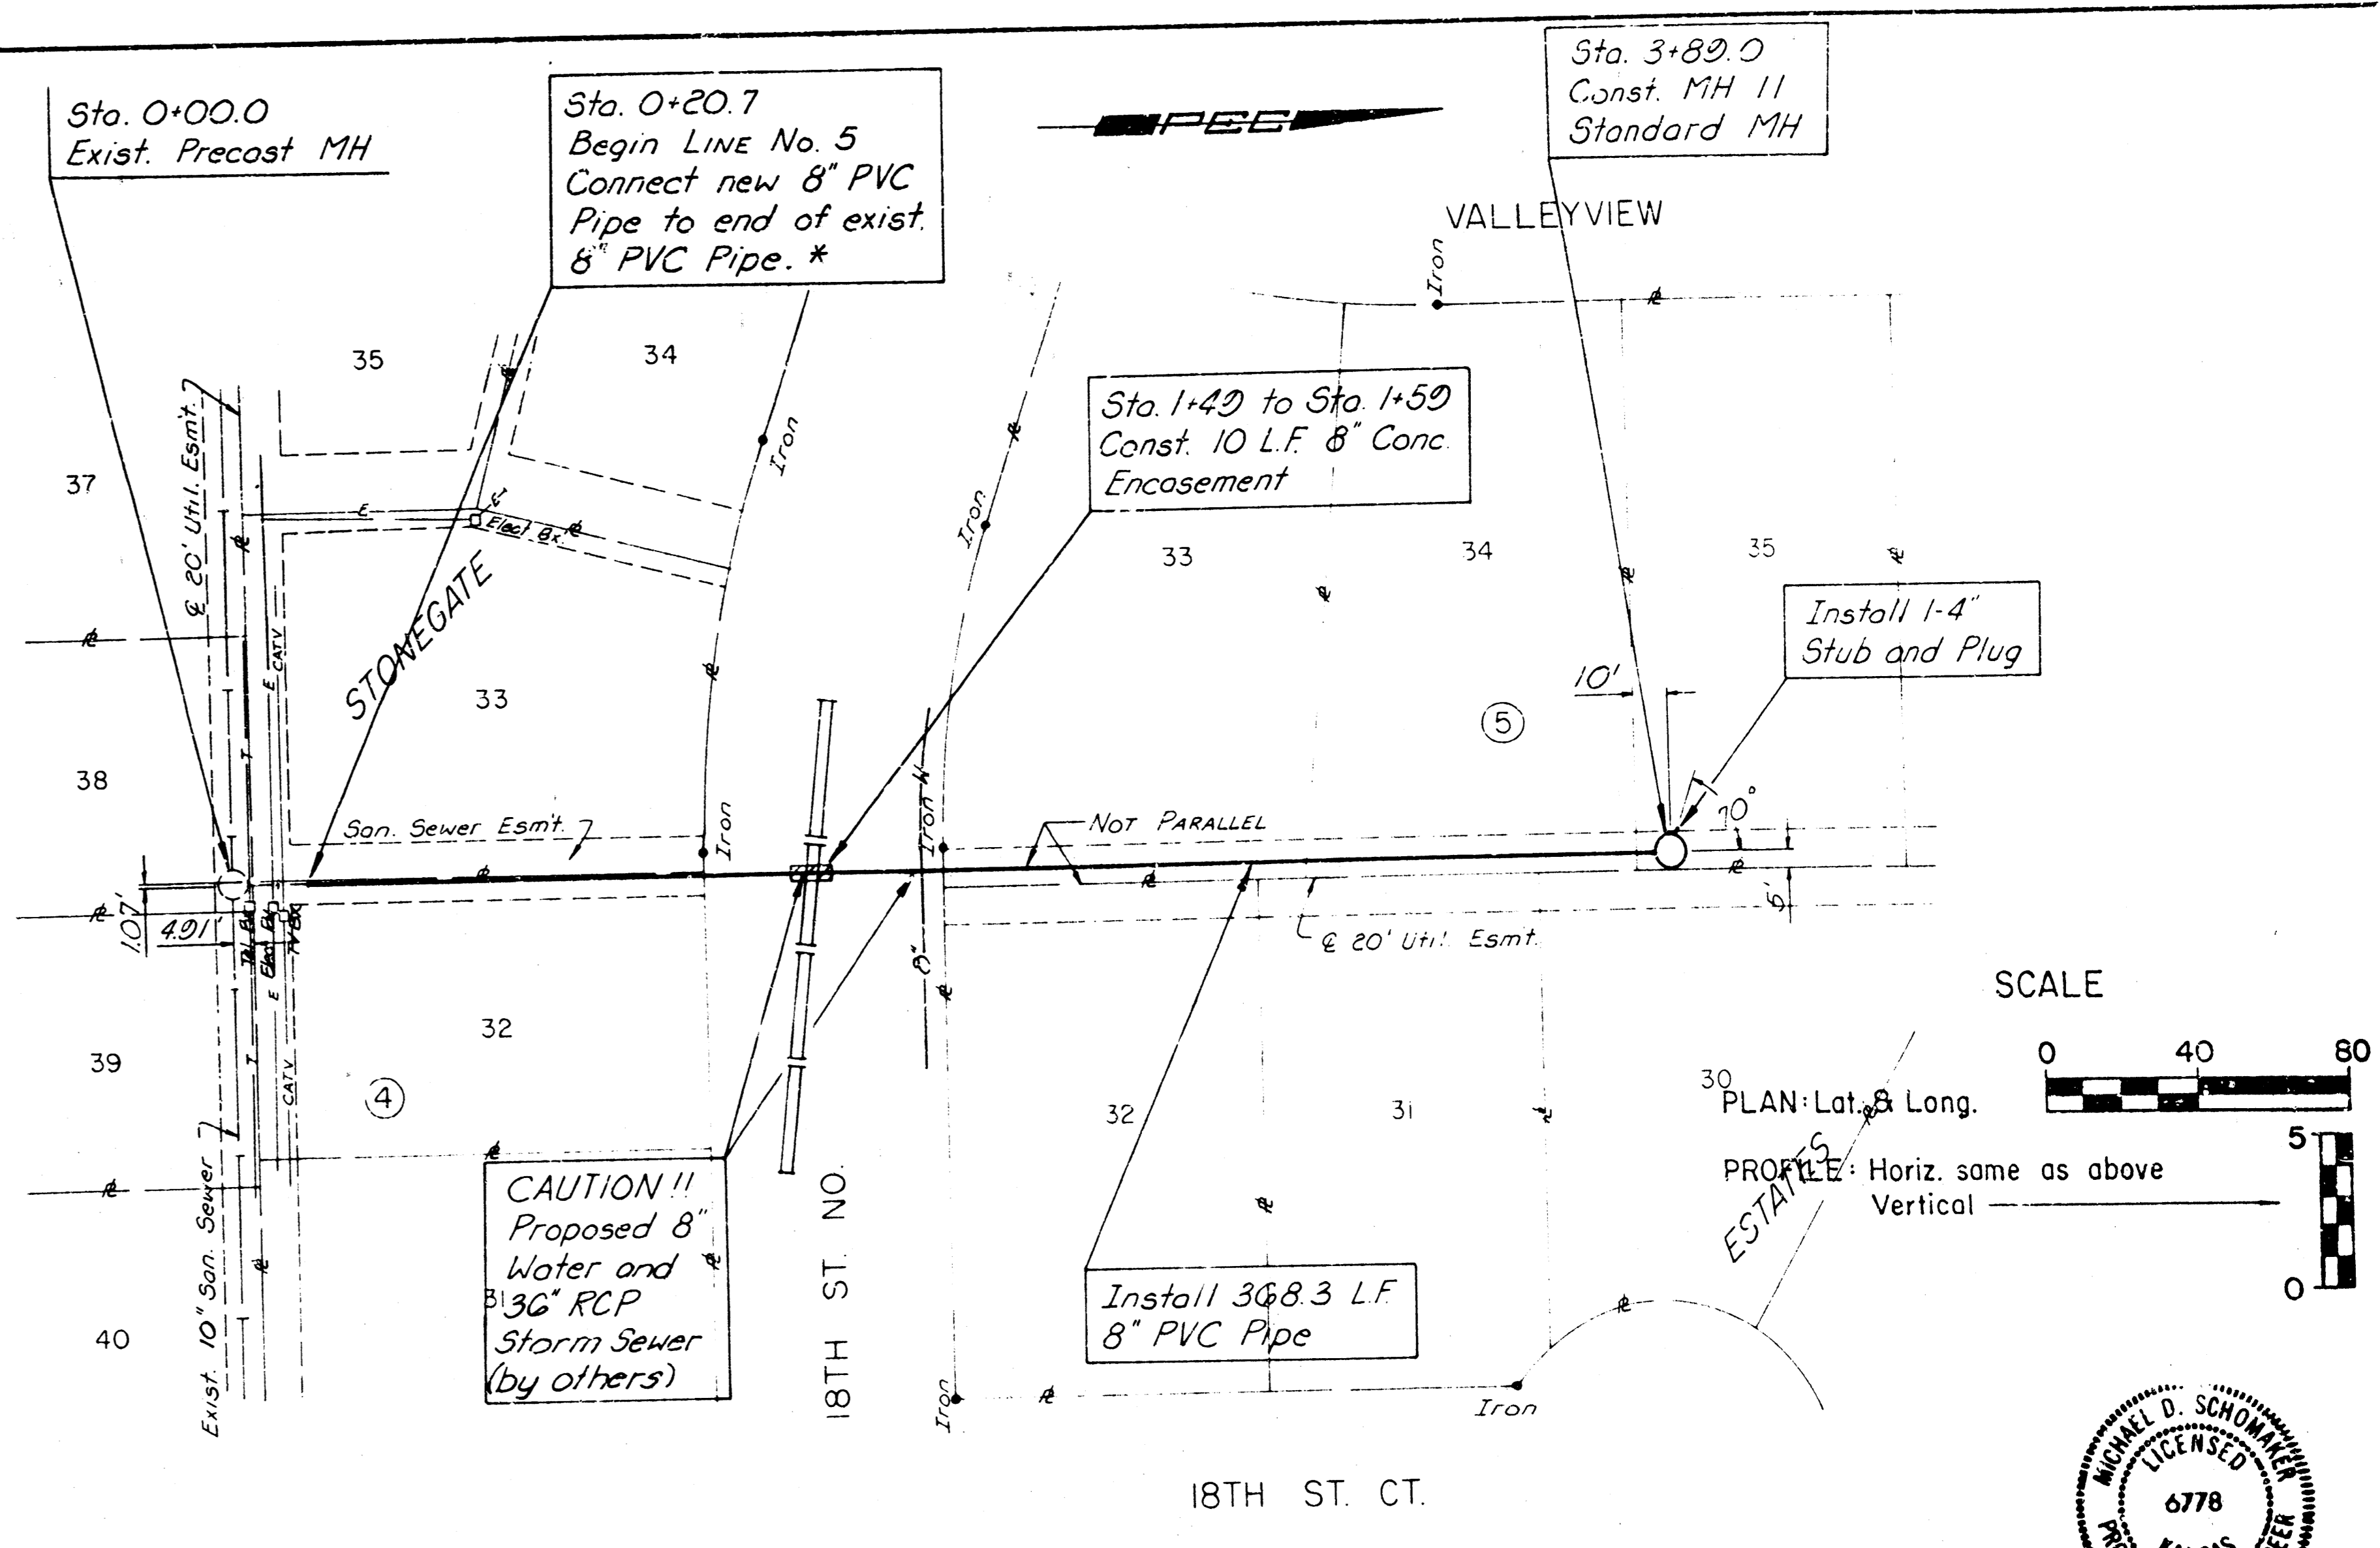 Sta. 0+00.0
Exist. Precast MH
Sta. 0+20.7
Begin LINE No. 5
Connect new 8" PVC
Pipe to end of exist.
8" PVC Pipe. *
PEC
Sta. 3+89.0
Const. MH 11
Standard MH
VALLEYVIEW
Iron
35
34
Iron
Sta. 1+49 to Sta. 1+59
Const. 10 L.F. 8" Conc.
Encasement
37
℄ 20' Util. Esm't.
E
Elect Bx.
Iron
33
34
35
STONEGATE
CATV
E
Install 1-4"
Stub and Plug
10'
33
5
38
T
San. Sewer Esm't.
Iron
Iron
W
NOT PARALLEL
70°
1.07'
4.91'
Tel. Bx
Elect Bx
TV Bx
8"
℄ 20' Util. Esmt.
5'
SCALE
0 40 80
39
32
E
T
CATV
4
32
31
30
PLAN: Lat. & Long.
PROFILE: Horiz. same as above
Vertical
5
0
ESTATES
CAUTION !!
Proposed 8"
Water and
36" RCP
Storm Sewer
(by others)
31
18TH ST. NO.
Install 368.3 L.F.
8" PVC Pipe
40
Exist. 10" San. Sewer
Iron
Iron
18TH ST. CT.
MICHAEL D. SCHOMAKER
LICENSED
6778
KANSAS